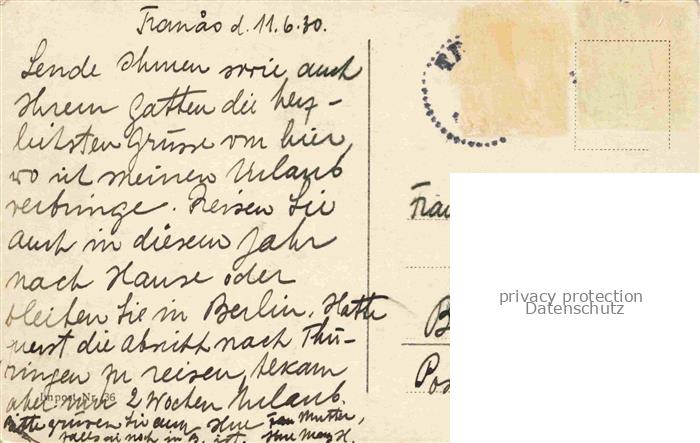 Tranås d. 11.6.30.
Sende Ihnen sowie auch
Ihrem Gatten die herz-
lichsten Grüsse von hier,
wo ich meinen Urlaub
verbringe. Reisen Sie
auch in diesem Jahr
nach Hause oder
bleiben Sie in Berlin. Hatte
zuerst die Absicht nach Thü-
ringen zu reisen, bekam
aber nur 2 Wochen Urlaub.
Bitte grüssen Sie auch Ihre Frau Mutter,
falls sie noch in B. ist. Ihre
Import Nr. 36
Frau
B
Pos
privacy protection
Datenschutz